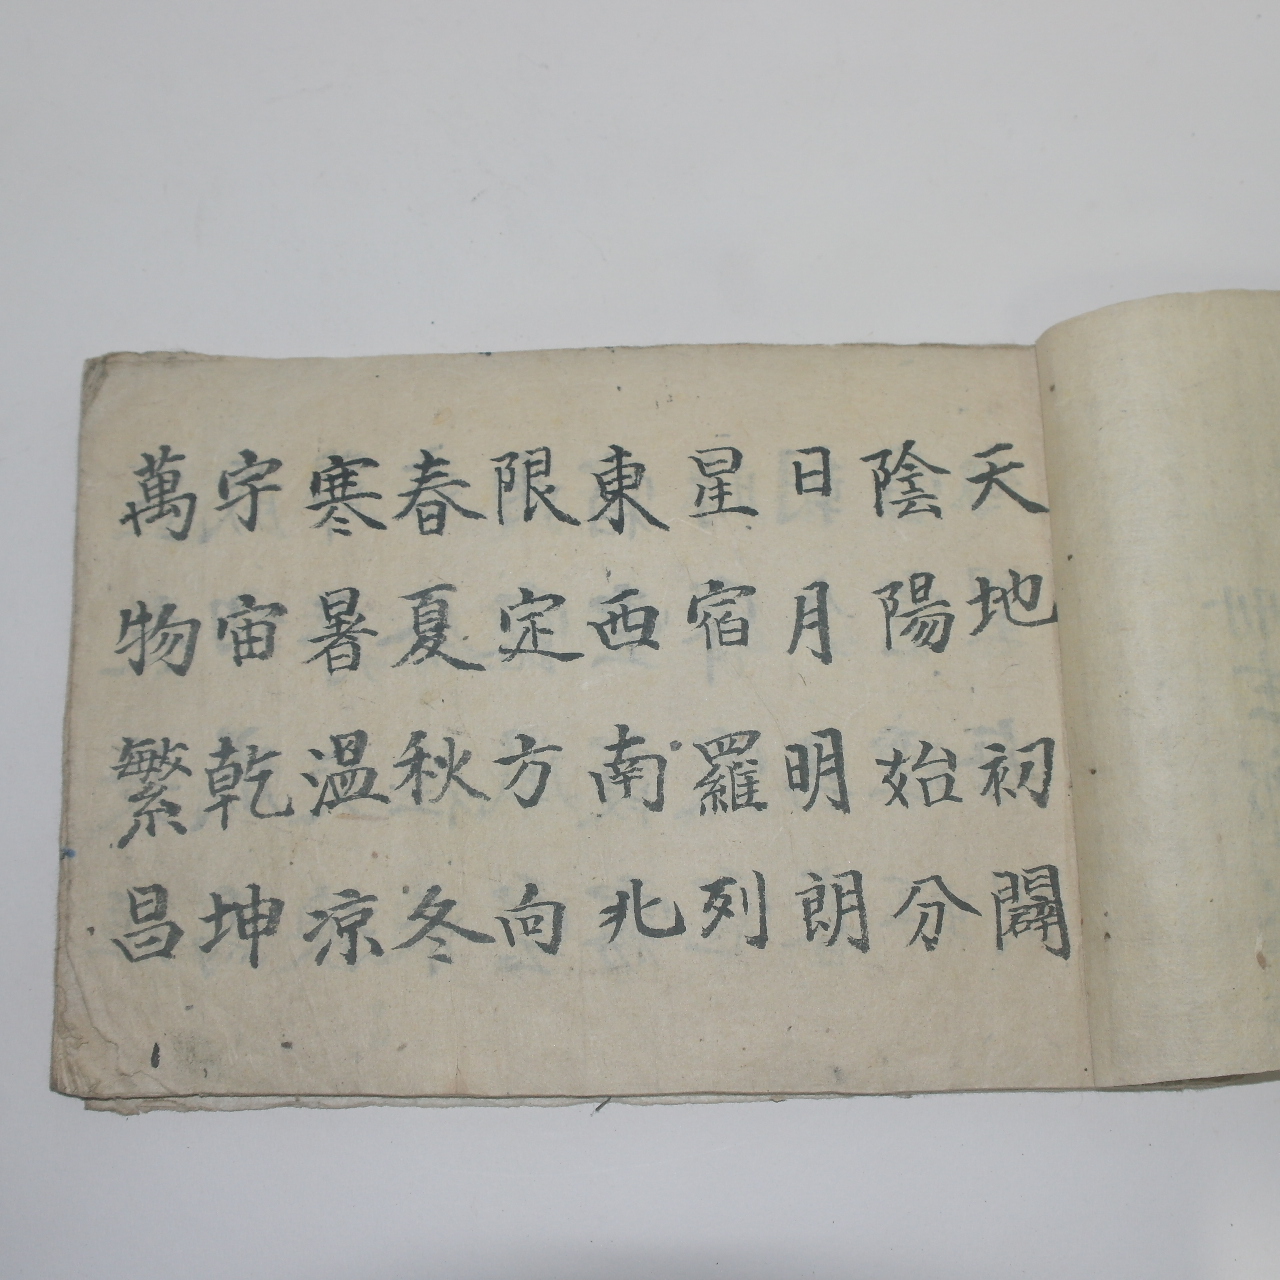 天地初闢
陰陽始分
日月明朗
星宿羅列
東西南北
限定方向
春夏秋冬
寒暑温凉
宇宙乾坤
萬物繁昌